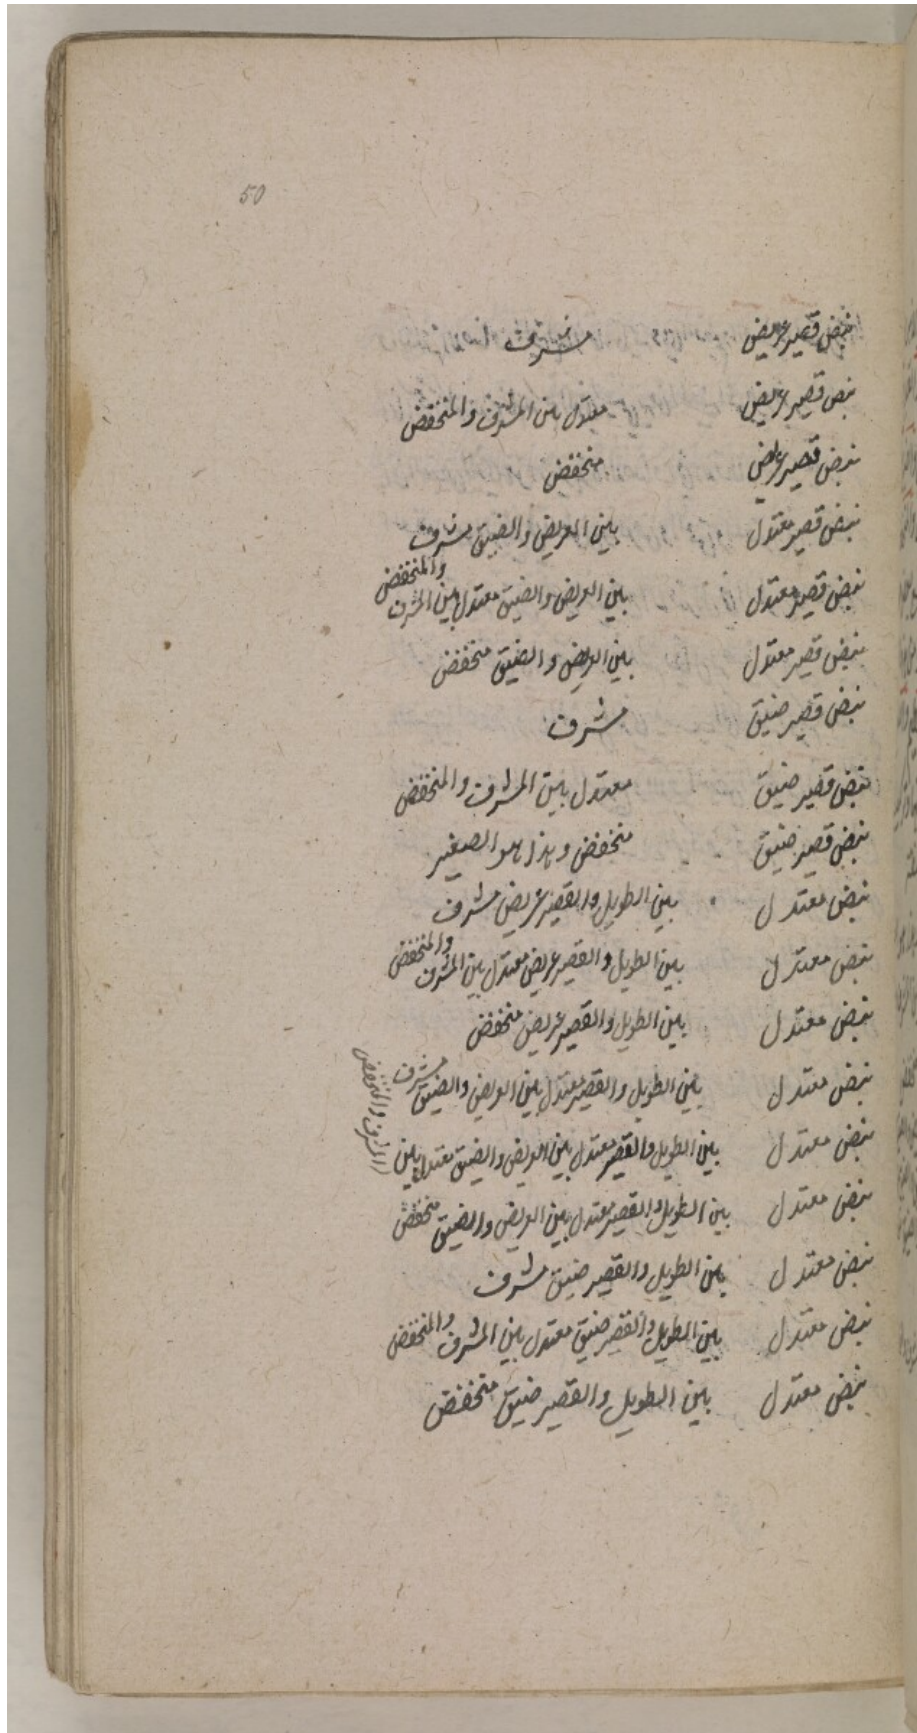 50
نبض قصير عريض مشرف
نبض قصير عريض معتدل بين المشرف والمنخفض
نبض قصير عريض منخفض
نبض قصير معتدل بين العريض والضيق مشرف
نبض قصير معتدل بين العريض والضيق معتدل بين المشرف والمنخفض
نبض قصير معتدل بين العريض والضيق منخفض
نبض قصير ضيق مشرف
نبض قصير ضيق معتدل بين المشرف والمنخفض
نبض قصير ضيق منخفض وهذا هو الصغير
نبض معتدل بين الطويل والقصير عريض مشرف
نبض معتدل بين الطويل والقصير عريض معتدل بين المشرف والمنخفض
نبض معتدل بين الطويل والقصير عريض منخفض
نبض معتدل بين الطويل والقصير معتدل بين العريض والضيق مشرف
نبض معتدل بين الطويل والقصير معتدل بين العريض والضيق معتدل بين المشرف والمنخفض
نبض معتدل بين الطويل والقصير معتدل بين العريض والضيق منخفض
نبض معتدل بين الطويل والقصير ضيق مشرف
نبض معتدل بين الطويل والقصير ضيق معتدل بين المشرف والمنخفض
نبض معتدل بين الطويل والقصير ضيق منخفض